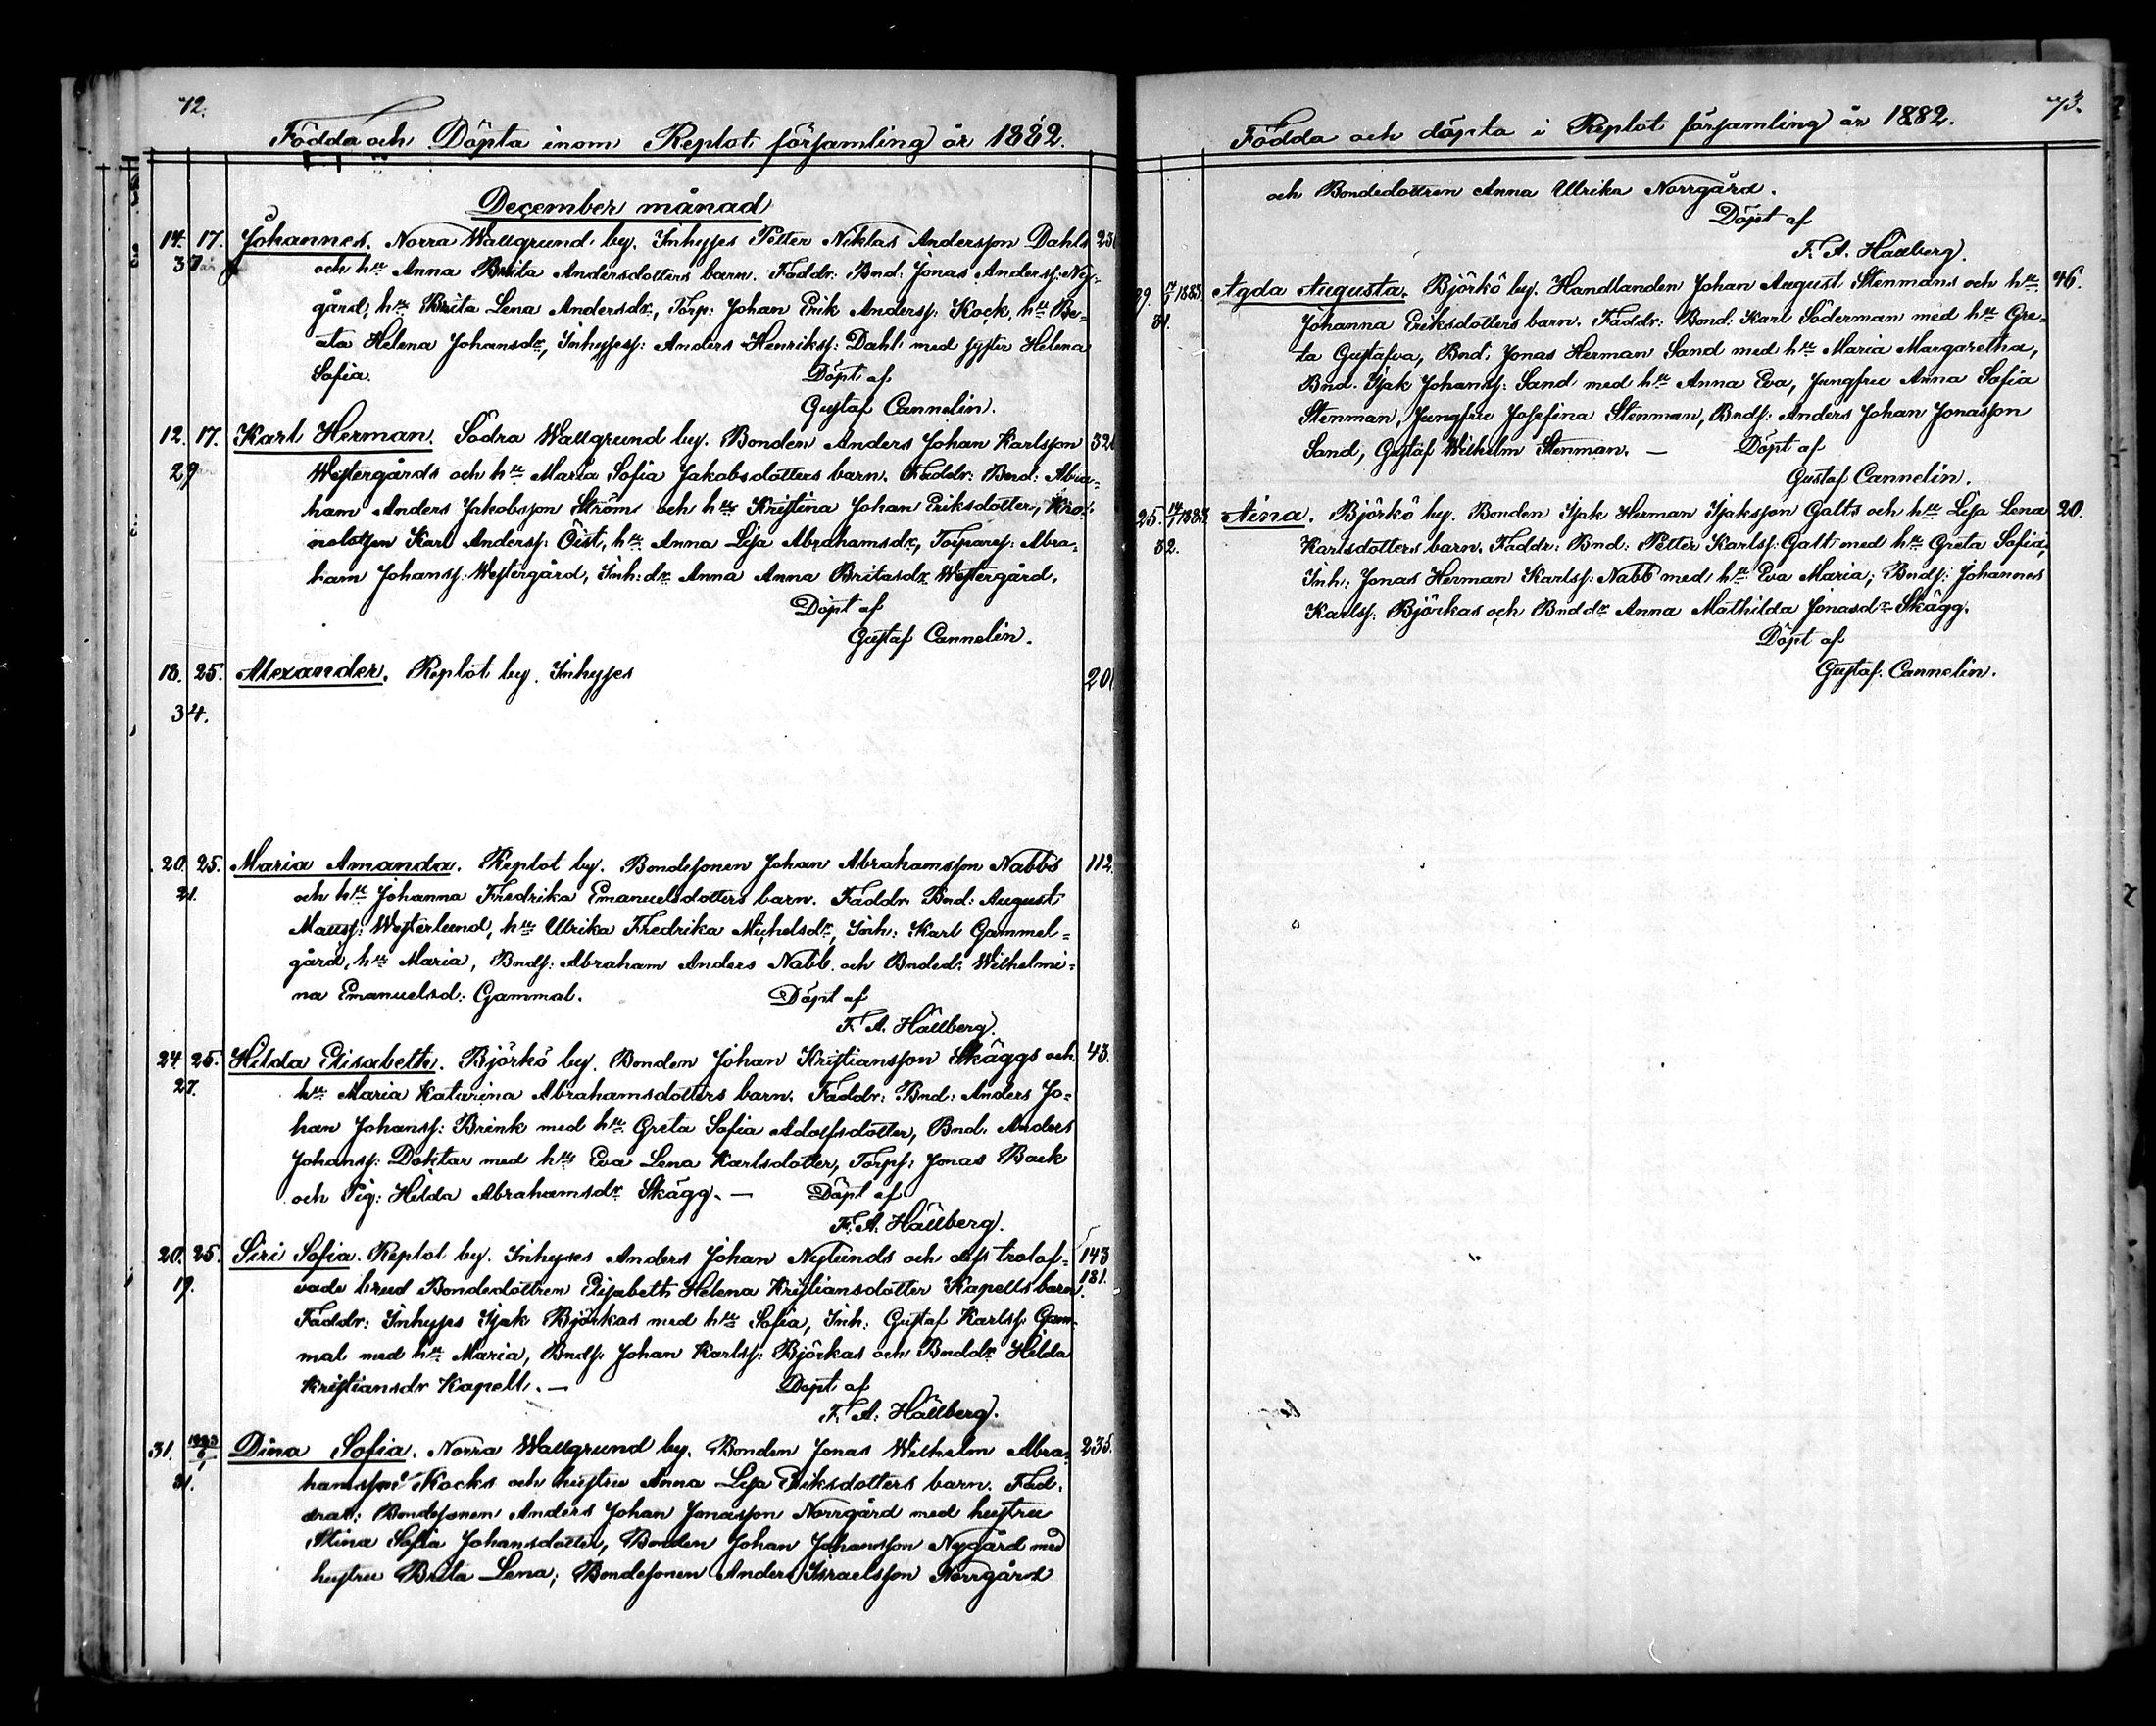 72.
Födda och Döpta inom Replot församling år 1882.
December månad
14. 17. Johannes. Norra Wallgrund by. Inhyses Petter Niklas Andersson Dahls 23
37 och hu Anna Brita Andersdotters barn. Faddr: Bnd: Jonas Anderss: Ny-
gård, hu Brita Lena Andersdr, Torp: Johan Erik Anderss: Kock, hu Be-
ata Helena Johansdr, Inhysess: Anders Henrikss: Dahl med syster Helena
Sofia. Döpt af
Gustaf Cannelin.
12. 17. Karl Herman. Södra Wallgrund by. Bonden Anders Johan Karlsson 32
29 Westergårds och hu Maria Sofia Jakobsdotters barn. Faddr: Bnd: Abra-
ham Anders Jakobsson Ström och hu Kristina Johan Eriksdotter, Kro-
nolotsen Karl Anderss: Öist, hu Anna Lisa Abrahamsdr, Torpares: Abra-
ham Johanss: Westergård, Inh: dr Anna Anna Britasdr Westergård,
Döpt af
Gustaf Cannelin.
18. 25. Alexander. Replot by. Inhyses 20
34.
20. 25. Maria Amanda. Replot by. Bondesonen Johan Abrahamsson Nabbs 112.
21. och hu Johanna Fredrika Emanuelsdotters barn. Faddr. Bnd: August
Matss: Westerlund, hu Ulrika Fredrika Michelsdr, Inh: Karl Gammel-
gård, hu Maria, Bnds: Abraham Anders Nabb. och Bnded: Wilhelmi-
na Emanuelsd: Gammal. Döpt af
F. A. Hällberg.
24 25. Hilda Elisabeth. Björkö by. Bonden Johan Kristiansson Skäggs och 43.
27. hu Maria Katarina Abrahamsdotters barn. Faddr: Bnd: Anders Jo-
han Johanss: Brink med hu Greta Sofia Adolfsdotter, Bnd. Anders
Johanss: Doktar med hu Eva Lena Karlsdotter, Torps: Jonas Back
och Pig: Hilda Abrahamsdr Skägg. — Döpt af
F. A. Hällberg.
20. 25. Siri Sofia. Replot by. Inhyses Anders Johan Nylunds och dess trolof- 143
19. vade brud Bondedottren Elisabeth Helena Kristiansdotter Kapells barn. 181.
Faddr: Inhyses Isak Björkas med hu Sofia, Inh: Gustaf Karlss: Gam-
mal med hu Maria, Bnds: Johan Karlss: Björkas och Bnddr Hilda
Kristiansdr Kapell. — Döpt af
F. A. Hällberg.
31. 1883 6/1 Dina Sofia. Norra Wallgrund by. Bonden Jonas Wilhelm Abra- 235.
31. hamsson Kocks och hustru Anna Lisa Eriksdotters barn. Fad-
drar: Bondesonen Anders Johan Jonasson Norrgård med hustru
Stina Sofia Johansdotter, Bonden Johan Johansson Nygård med
hustru Brita Lena; Bondesonen Anders Israelsson Norrgård
73.
Födda och döpta i Replot församling år 1882.
och Bondedottren Anna Ulrika Norrgård.
Döpt af
F. A. Hällberg.
29. 1883 Agda Augusta. Björkö by. Handlanden Johan August Stenmans och hu 46.
31. Johanna Eriksdotters barn. Faddr: Bond: Karl Söderman med hu Gre-
ta Gustafva, Bnd: Jonas Herman Sand med hu Maria Margaretha,
Bnd. Isak Johanss: Sand med hu Anna Eva, Jungfru Anna Sofia
Stenman, Jungfru Josefina Stenman, Bnds: Anders Johan Jonasson
Sand, Gustaf Wilhelm Stenman. — Döpt af
Gustaf Cannelin.
25. 14/1 1883. Aina. Björkö by. Bonden Isak Herman Isaksson Galts och hu Lisa Lena 20.
32. Karlsdotters barn. Faddr: Bnd: Petter Karlss: Galt med hu Greta Sofia,
Inh: Jonas Herman Karlss: Nabb med hu Eva Maria; Bnds: Johannes
Karlss: Björkas och Bnddr Anna Mathilda Jonasdr Skägg.
Döpt af
Gustaf. Cannelin.